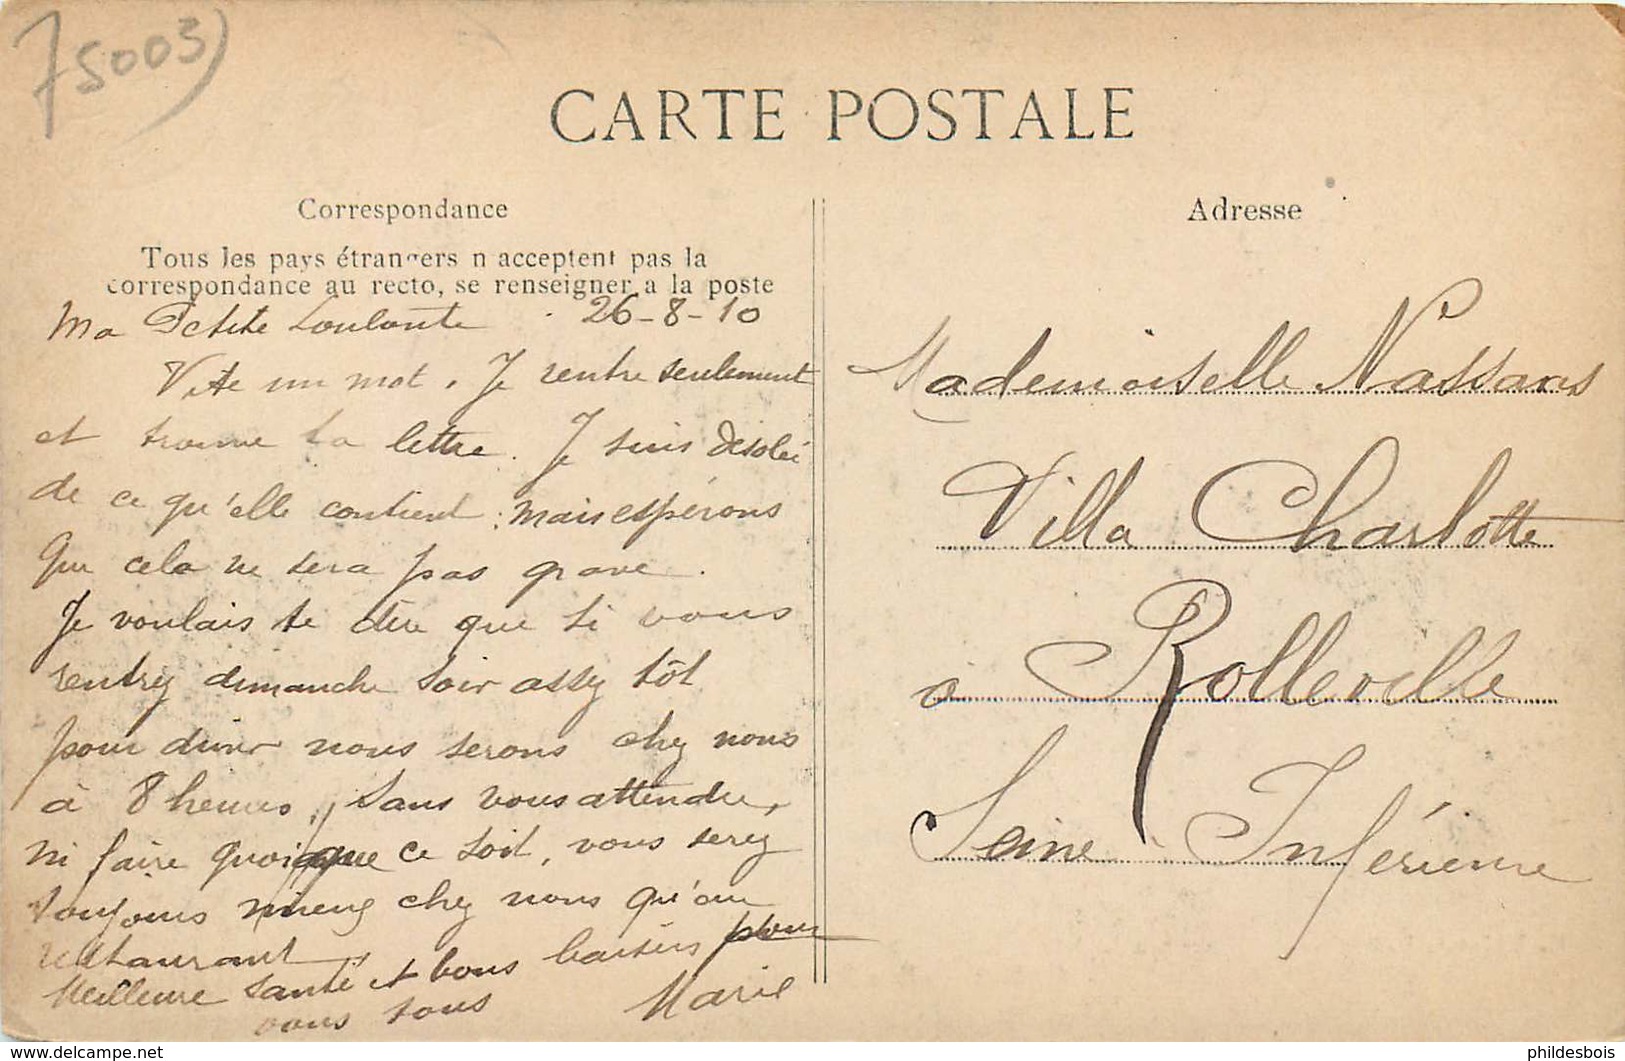 75003)
CARTE POSTALE
Correspondance
Tous les pays étrangers n acceptent pas la
correspondance au recto, se renseigner a la poste
26-8-10
Ma Petite Louloute
Vite un mot. Je rentre seulement
et trouve ta lettre. Je suis désolée
de ce qu'elle contient ; mais espérons
que cela ne sera pas grave.
Je voulais te dire que si vous
rentrez dimanche soir assez tôt
pour diner nous serons chez nous
à 8 heures, sans vous attendre,
ni faire quoique ce soit, vous serez
toujours mieux chez nous qu'au
restaurant,
Meilleure santé et bons baisers pour
vous tous Marie
Adresse
Mademoiselle
Villa Charlotte
à Rolleville
Seine Inférieure
delcampe.net
phildesbois